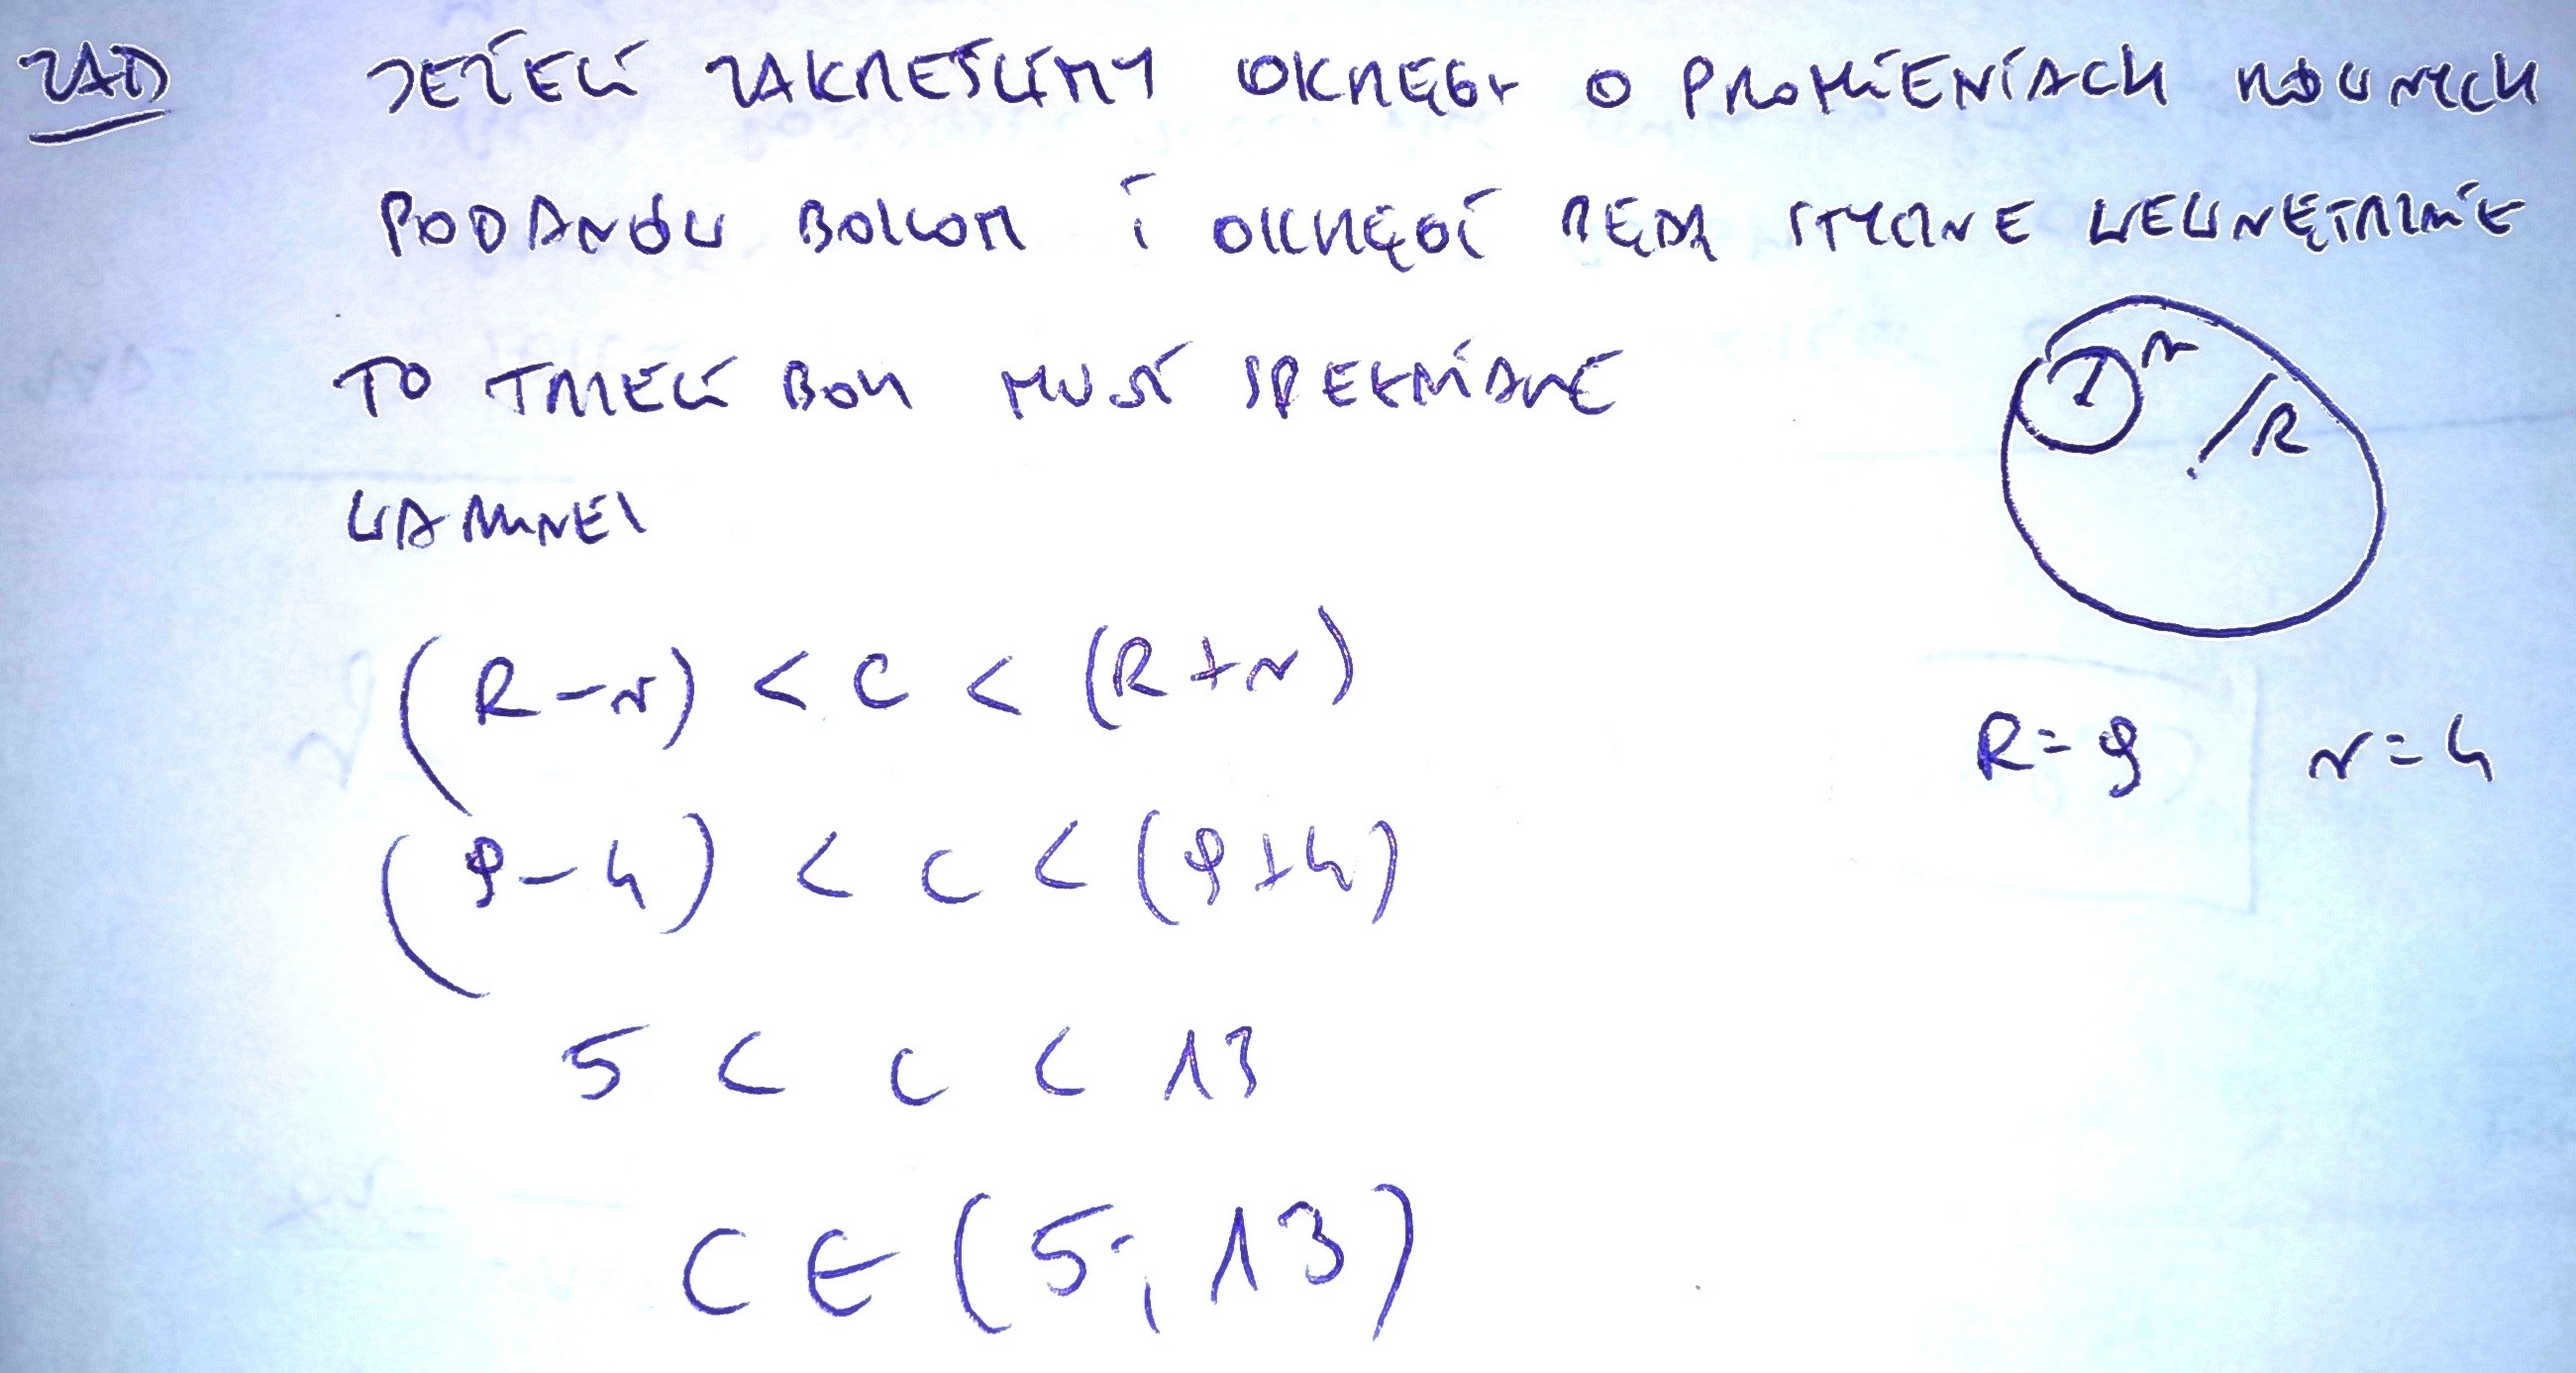 ZAD JEŻELI ZAKREŚLIMY OKRĘGI O PROMIENIACH RÓWNYCH
PODANÓW BOKOM I OKRĘGI BĘDĄ STYCZNE WEWNĘTRZNIE
TO TRZECI BOK MUSI SPEŁNIAĆ
WARUNEK
r
R
(R-r) < c < (R+r)
R=9 r=4
(9-4) < c < (9+4)
5 < c < 13
C ∈ (5; 13)